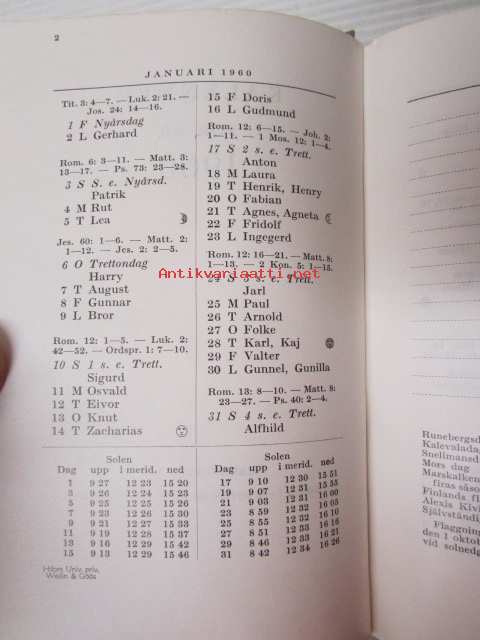 2
JANUARI 1960
Tit. 3: 4—7. — Luk. 2: 21. —
Jos. 24: 14—16.
1 F Nyårsdag
2 L Gerhard
Rom. 6: 3—11. — Matt. 3:
13—17. — Ps. 73: 23—28.
3 S S. e. Nyårsd.
Patrik
4 M Rut
5 T Lea
Jes. 60: 1—6. — Matt. 2:
1—12. — Jes. 2: 2—5.
6 O Trettondag
Harry
7 T August
8 F Gunnar
9 L Bror
Rom. 12: 1—5. — Luk. 2:
42—52. — Ordspr. 1: 7—10.
10 S 1 s. e. Trett.
Sigurd
11 M Osvald
12 T Eivor
13 O Knut
14 T Zacharias
15 F Doris
16 L Gudmund
Rom. 12: 6—15. — Joh. 2:
1—11. — 1 Mos. 12: 1—4.
17 S 2 s. e. Trett.
Anton
18 M Laura
19 T Henrik, Henry
20 O Fabian
21 T Agnes, Agneta
22 F Fridolf
23 L Ingegerd
Rom. 12: 16—21. — Matt. 8:
1—13. — 2 Kon. 5: 1—15.
24 S 3 s. e. Trett.
Jarl
25 M Paul
26 T Arnold
27 O Folke
28 T Karl, Kaj
29 F Valter
30 L Gunnel, Gunilla
Rom. 13: 8—10. — Matt. 8:
23—27. — Ps. 40: 2—4.
31 S 4 s. e. Trett.
Alfhild
Solen
Dag upp i merid. ned
1 9 27 12 23 15 20
3 9 26 12 24 15 23
5 9 25 12 25 15 26
7 9 23 12 26 15 30
9 9 21 12 27 15 33
11 9 19 12 28 15 37
13 9 16 12 29 15 42
15 9 13 12 29 15 46
Solen
Dag upp i merid. ned
17 9 10 12 30 15 51
19 9 07 12 31 15 55
21 9 03 12 31 16 00
23 8 59 12 32 16 05
25 8 55 12 32 16 10
27 8 51 12 33 16 16
29 8 46 12 33 16 21
31 8 42 12 34 16 26
Hfors Univ. priv.
Weilin & Göös
Antikvariaatti.net
Runebergsd
Kalevaladag
Snellmansd
Mors dag
Marskalken
firas söne
Finlands fl
Alexis Kivi
Självständi
Flaggning
den 1 oktob
vid solned